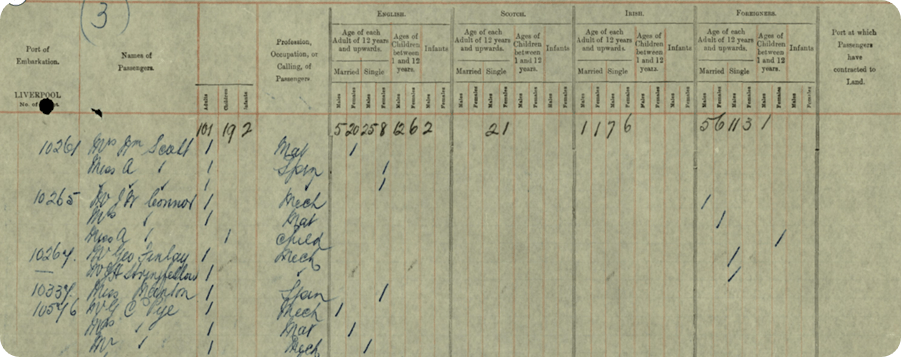 (3)
ENGLISH. SCOTCH. IRISH. FOREIGNERS.
Port of Embarkation. Names of Passengers. Profession, Occupation, or Calling, of Passengers Age of each Adult of 12 years and upwards. Ages of Children between 1 and 12 years. Infants Age of each Adult of 12 years and upwards. Ages of Children between 1 and 12 years. Infants Age of each Adult of 12 years and upwards. Ages of Children between 1 and 12 years. Infants Age of each Adult of 12 years and upwards. Ages of Children between 1 and 12 years. Infants Port at which Passengers have contracted to Land.
Married Single Married Single Married Single Married Single
LIVERPOOL
No. of
Adults Children Infants Males Females Males Females Males Females Males Females Males Females Males Females Males Females Males Females Males Females Males Females Males Females Males Females Males Females Males Females Males Females Males Females
101 19 2 5 20 25 8 12 6 2 2 1 1 1 7 6 5 6 11 3 1
10261 Mrs Wm Scott 1 Mat 1
Miss A " 1 Spin 1
" " 1 " 1
10265 Mr J W Connor 1 Mech 1
Mrs " 1 Mat 1
Miss A " 1 Child 1
10267 Mr Geo Finlay 1 Mech 1
— Mr J H Stringfellow 1 " 1
10337 Miss Manton 1 Spin 1
10576 Mr G C Pye 1 Mech 1
Mrs " 1 Mat 1
Mr " 1 Mech 1